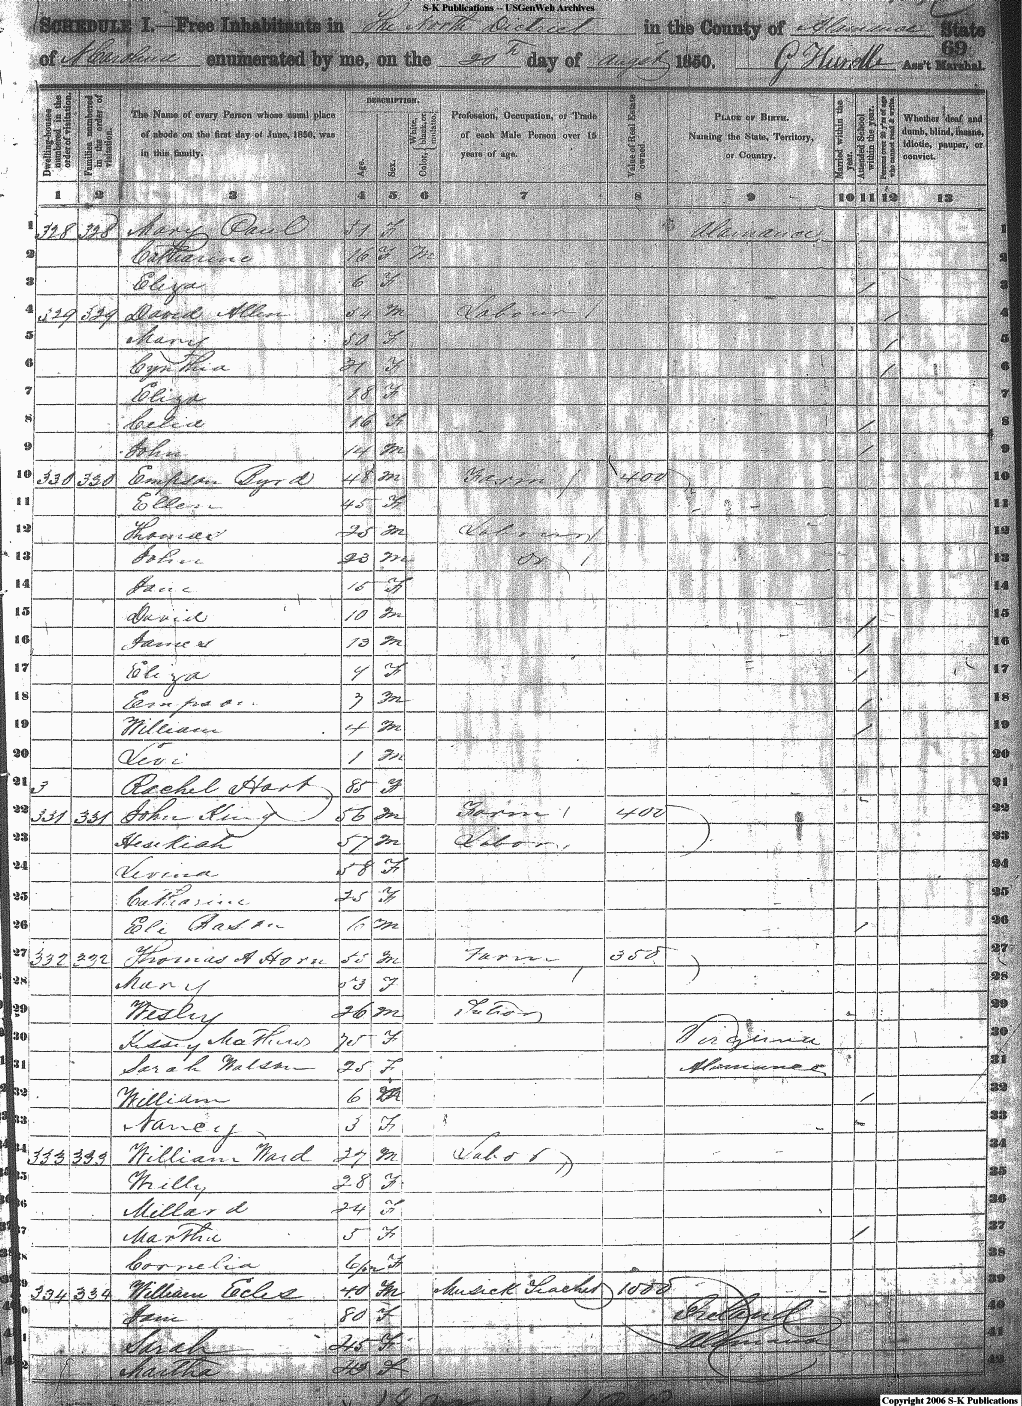 S-K Publications -- USGenWeb Archives
SCHEDULE I.—Free Inhabitants in The North District in the County of Alamance State
of N Carolina enumerated by me, on the 20th day of August 1850. G Hurdle Ass't Marshal.
69
DESCRIPTION.
Dwelling-houses numbered in the order of visitation.
Families numbered in the order of visitation.
The Name of every Person whose usual place of abode on the first day of June, 1850, was in this family.
Age.
Sex.
Color, { White, black, or mulatto.
Profession, Occupation, or Trade of each Male Person over 15 years of age.
Value of Real Estate owned.
PLACE OF BIRTH. Naming the State, Territory, or Country.
Married within the year.
Attended School within the year.
Persons over 20 y'rs of age who cannot read & write.
Whether deaf and dumb, blind, insane, idiotic, pauper, or convict.
1 2 3 4 5 6 7 8 9 10 11 12 13
1 328 328 Mary Paul 51 F Alamance 1
2 Catharine 16 F M 2
3 Eliza 6 F / 3
4 329 329 David Allen 54 M Labour / / 4
5 Mary 50 F / 5
6 Cynthia 21 F / 6
7 Eliza 18 F 7
8 Celia 16 F / 8
9 John 14 M / 9
10 330 330 Empson Byrd 48 M Farm / 400 10
11 Ellen 45 F 11
12 Thomas 25 M Labour 12
13 John 23 M Do / 13
14 Jane 15 F 14
15 David 10 M / 15
16 James 13 M / 16
17 Eliza 9 F / 17
18 Empson 7 M / 18
19 William 4 M / 19
20 Levi 1 M 20
21 3 Rachel Hart 85 F 21
22 331 331 John King 56 M Farm / 400 22
23 Hesekiah 57 M Labor 23
24 Levina 58 F 24
25 Catharine 25 F 25
26 Eli 6 M / 26
27 332 332 Thomas A Horn 55 M Farm 350 27
28 Mary 53 F 28
29 Wesley 26 M 29
30 Kissy Mathews 75 F Virginia 30
31 Sarah Watson 25 F Alamance 31
32 William 6 M / 32
33 Nancy 3 F 33
34 333 333 William Ward 27 M Labor 34
35 Milly 28 F 35
36 Millard 24 F 36
37 Martha 5 F / 37
38 Cornelia 6/12 F 38
39 334 334 William Ecles 40 M Musick Teacher 1000 39
40 Jane 80 F Ireland 40
41 Sarah 45 F Alamance 41
42 Martha 43 F 42
Copyright 2006 S-K Publications